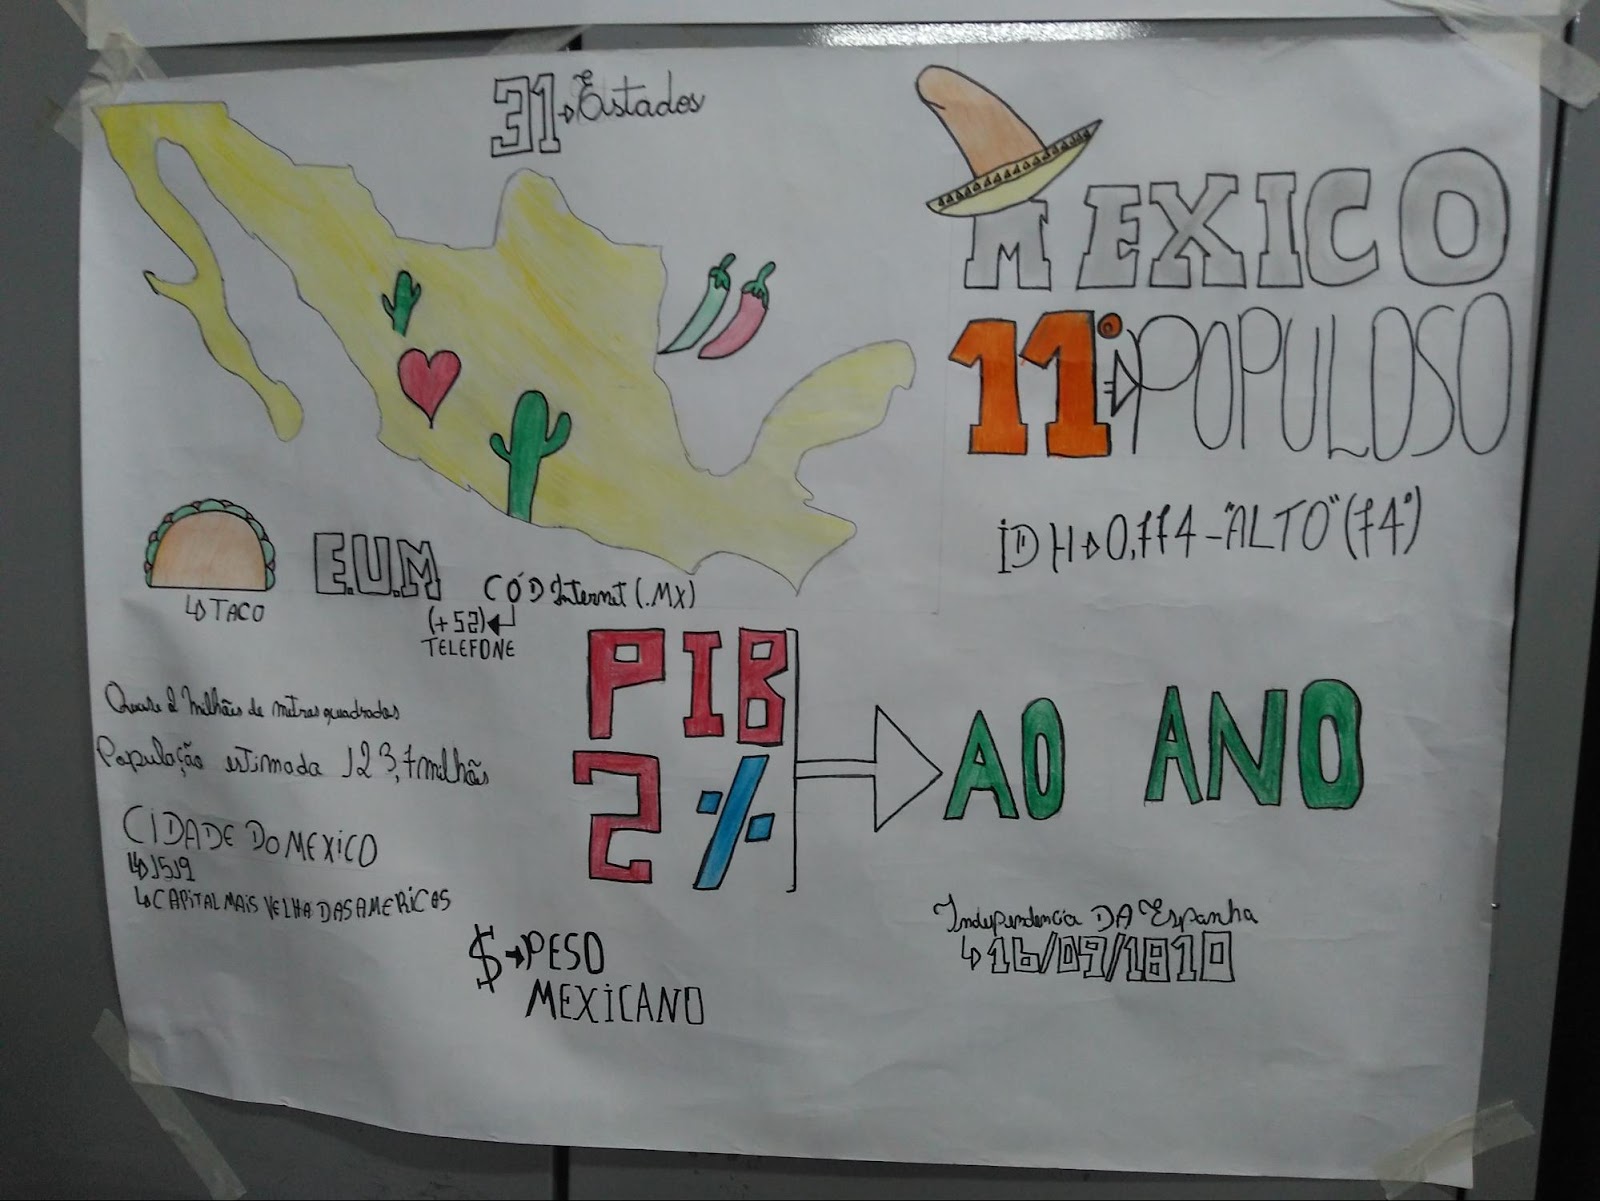 31 → Estados
MEXICO
11º → POPULOSO
IDH → 0,774 - "ALTO" (74º)
↳ TACO
E.U.M
CÓD Internet (.MX)
(+52) ↵
TELEFONE
PIB
2%
AO ANO
Quase 2 Milhões de metros quadrados
População estimada 123,7 milhões
CIDADE DO MEXICO
↳ 1519
↳ CAPITAL MAIS VELHA DAS AMERICAS
$ → PESO
MEXICANO
Independencia DA Espanha
↳ 16/09/1810